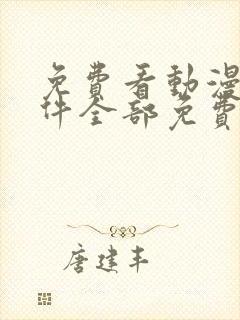 免費看動漫
件全部免費
唐建丰